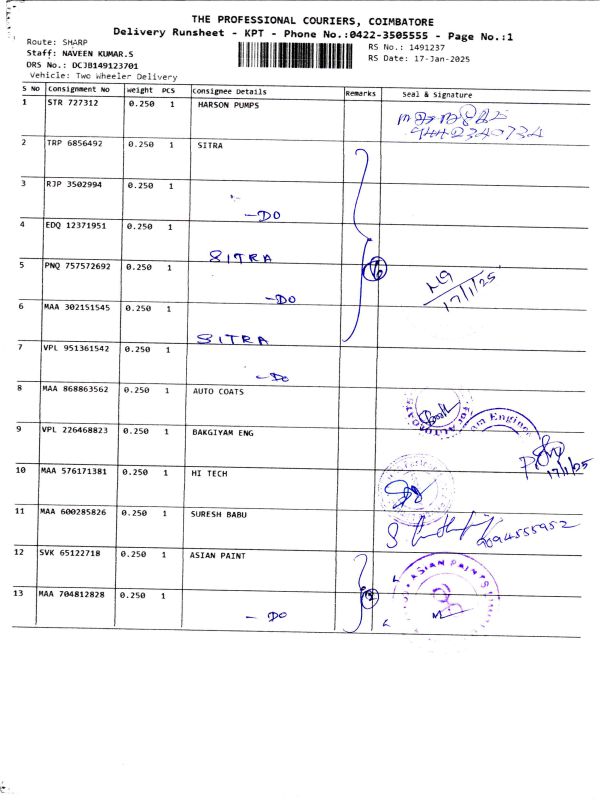 THE PROFESSIONAL COURIERS, COIMBATORE
Delivery Runsheet - KPT - Phone No.:0422-3505555 - Page No.:1
Route: SHARP
RS No.: 1491237
Staff: NAVEEN KUMAR.S
RS Date: 17-Jan-2025
DRS No.: DCJB149123701
Vehicle: Two Wheeler Delivery
S No Consignment No Weight PCS Consignee Details Remarks Seal & Signature
1 STR 727312 0.250 1 HARSON PUMPS
9442340734
2 TRP 6856492 0.250 1 SITRA
3 RJP 3502994 0.250 1
-DO
4 EDQ 12371951 0.250 1
SITRA
5 PNQ 757572692 0.250 1
-DO
17/1/25
6 MAA 302151545 0.250 1
SITRA
7 VPL 951361542 0.250 1
-DO
8 MAA 868863562 0.250 1 AUTO COATS
9 VPL 226468823 0.250 1 BAKGIYAM ENG
17/1/25
10 MAA 576171381 0.250 1 HI TECH
11 MAA 600285826 0.250 1 SURESH BABU
9094555952
12 SVK 65122718 0.250 1 ASIAN PAINT
ASIAN PAINTS
13 MAA 704812828 0.250 1
- DO